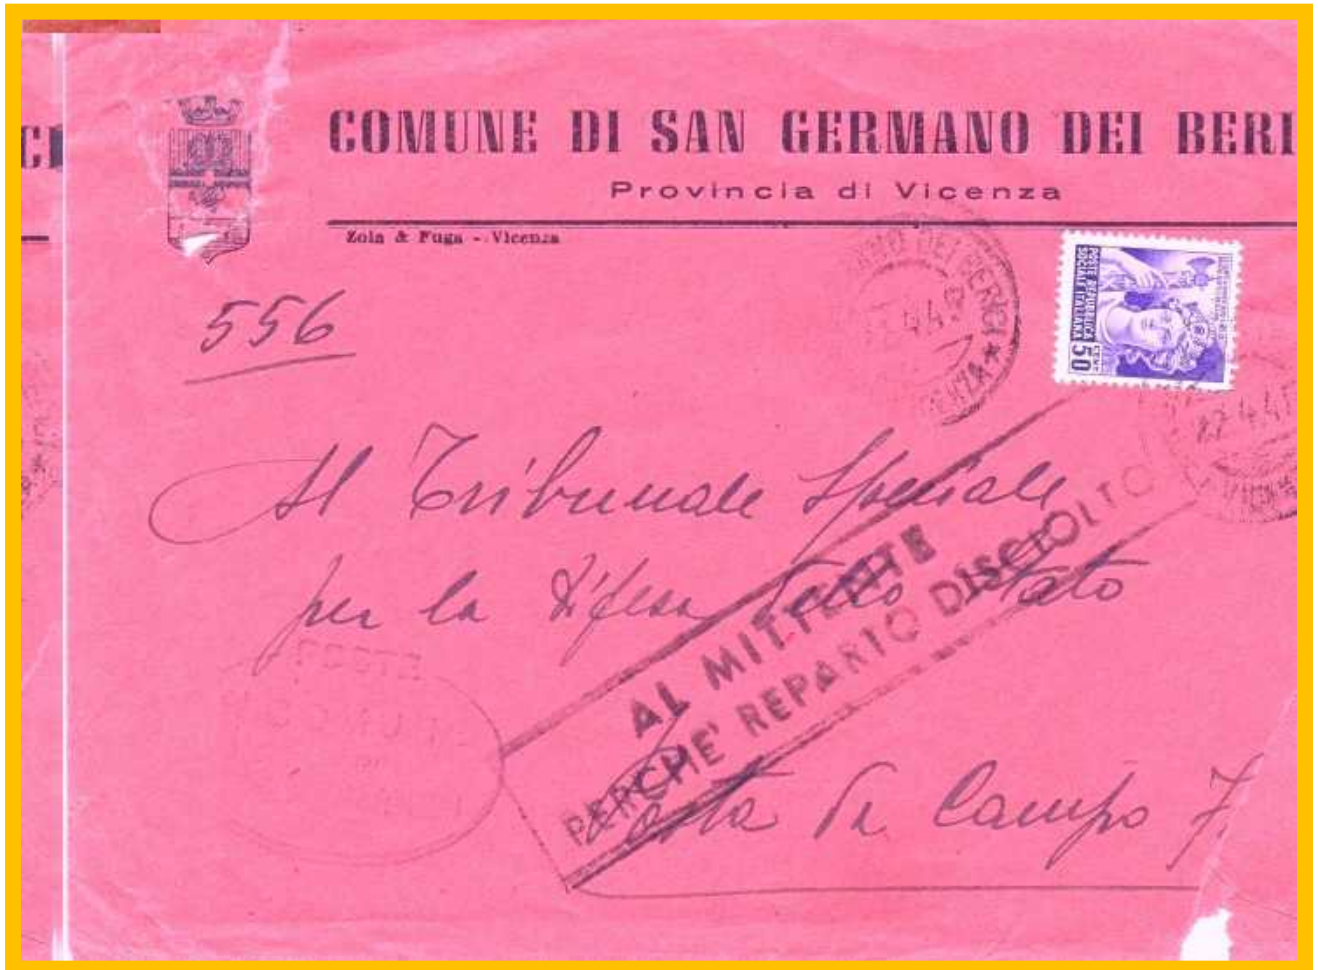 COMUNE DI SAN GERMANO DEI BERI
Provincia di Vicenza
Zola & Fuga - Vicenza
556
POSTE REPUBBLICA
SOCIALE ITALIANA
CENT 50
27.4.4
Al Tribunale Speciale
per la difesa dello Stato
AL MITTENTE
PERCHE' REPARTO DISCIOLTO
Posta da Campo 7.